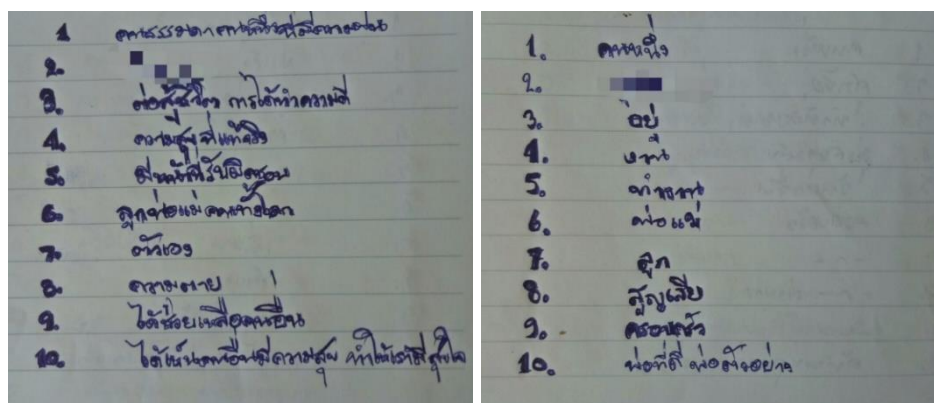 1 คนธรรมดาคนหนึ่งที่มีความฝัน
2.
3. ต่อสู้ชีวิต การได้ทำความดี
4. ความสุขที่แท้จริง
5. มีหน้าที่รับผิดชอบ
6. ลูกพ่อแม่คนทั้งโลก
7. ตัวเอง
8. ความตาย
9. ได้ช่วยเหลือคนอื่น
10. ได้เห็นคนอื่นมีความสุข ทำให้เรามีสุขใจ
1. คนหนึ่ง
2.
3. อยู่
4. งาน
5. ทำงาน
6. พ่อแม่
7. ลูก
8. สูญเสีย
9. ครอบครัว
10. พ่อที่ดี พ่อตัวอย่าง